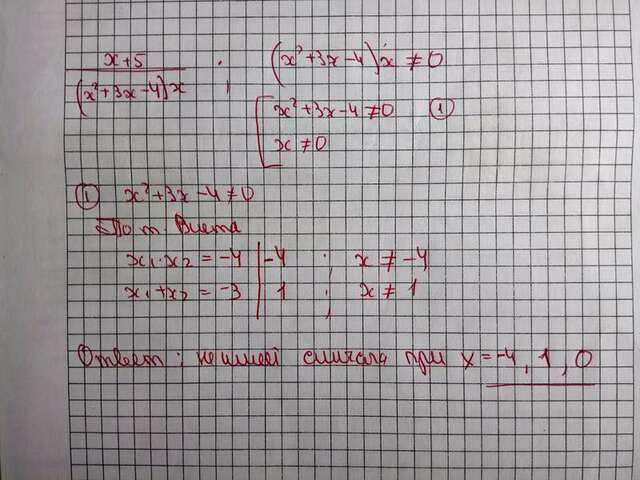 x+5 / (x²+3x-4)x ; (x²+3x-4)x ≠ 0
[ x²+3x-4 ≠ 0 ①
x ≠ 0
① x²+3x-4 ≠ 0
По т. Виета
x₁·x₂ = -4 | -4 ; x ≠ -4
x₁+x₂ = -3 | 1 ; x ≠ 1
Ответ: не имеет смысла при x = -4, 1, 0